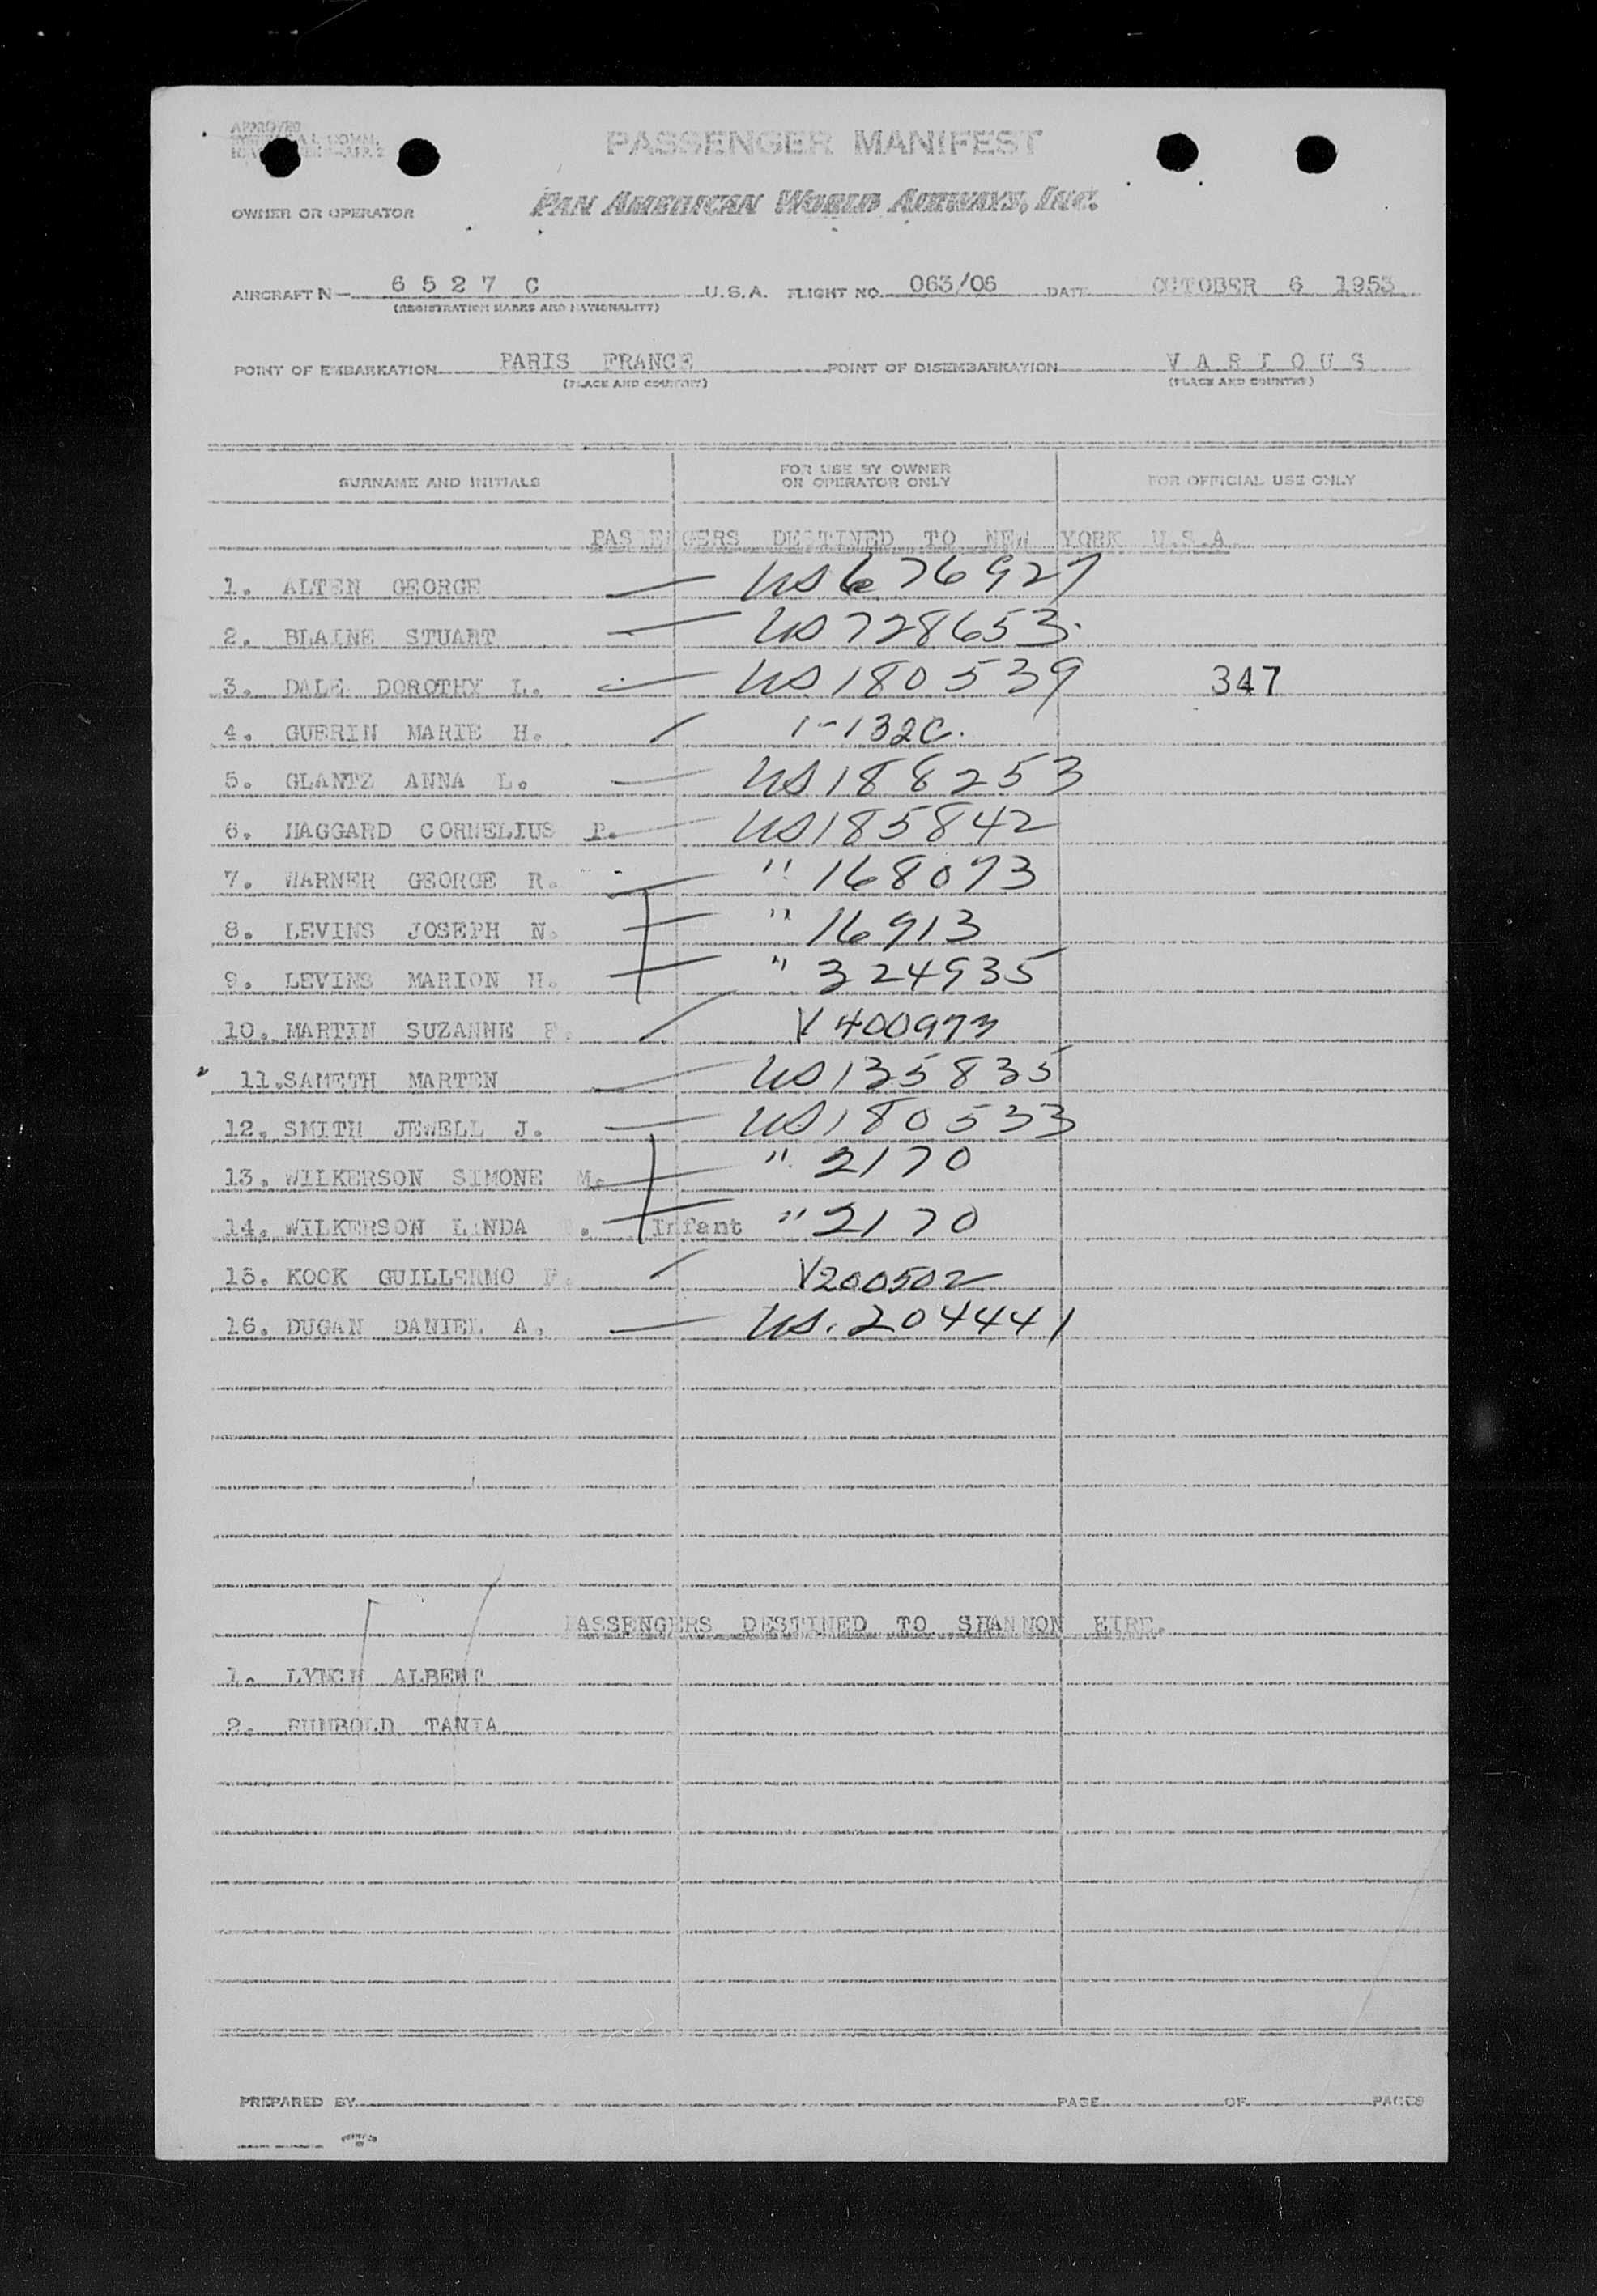 APPROVED
PASSENGER MANIFEST
OWNER OR OPERATOR PAN AMERICAN WORLD AIRWAYS, INC.
AIRCRAFT N- 6 5 2 7 C U.S.A. FLIGHT NO. 063/06 DATE OCTOBER 6 1953
(REGISTRATION MARKS AND NATIONALITY)
POINT OF EMBARKATION PARIS FRANCE POINT OF DISEMBARKATION V A R I O U S
(PLACE AND COUNTRY) (PLACE AND COUNTRY)
SURNAME AND INITIALS FOR USE BY OWNER OR OPERATOR ONLY FOR OFFICIAL USE ONLY
PASSENGERS DESTINED TO NEW YORK U.S.A
1. ALTEN GEORGE — US 676927
2. BLAINE STUART — US 728653
3. DALE DOROTHY L. — US 180539 347
4. GUERIN MARIE H. / 1-132C.
5. GLANTZ ANNA L. — US 188253
6. HAGGARD CORNELIUS P. — US 185842
7. WARNER GEORGE R. — " 168073
8. LEVINS JOSEPH N. — " 16913
9. LEVINS MARION H. — " 324935
10. MARTIN SUZANNE / V 400973
11. SAMETH MARTEN — US 135835
12. SMITH JEWELL J. — US 180533
13. WILKERSON SIMONE M. — " 2170
14. WILKERSON LINDA — Infant " 2170
15. KOOK GUILLERMO / V200502
16. DUGAN DANIEL A. — US. 204441
PASSENGERS DESTINED TO SHANNON EIRE.
1. LYNCH ALBERT
2. RUMBOLD TANIA
PREPARED BY PAGE OF PAGES